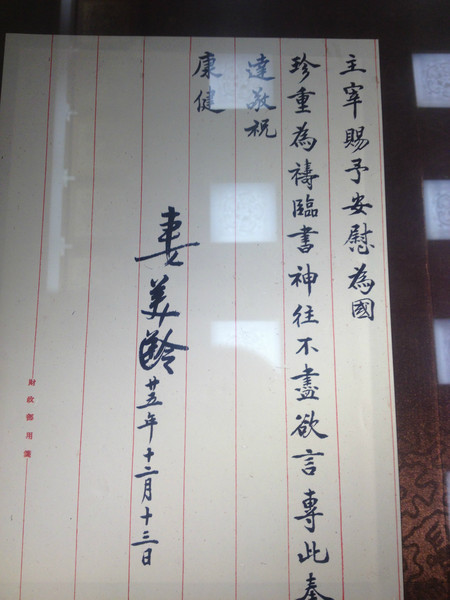 主宰賜予安慰為國
珍重為禱臨書神往不盡欲言專此奉
達敬祝
康健
妻美齡
廿五年十二月十三日
財政部用箋